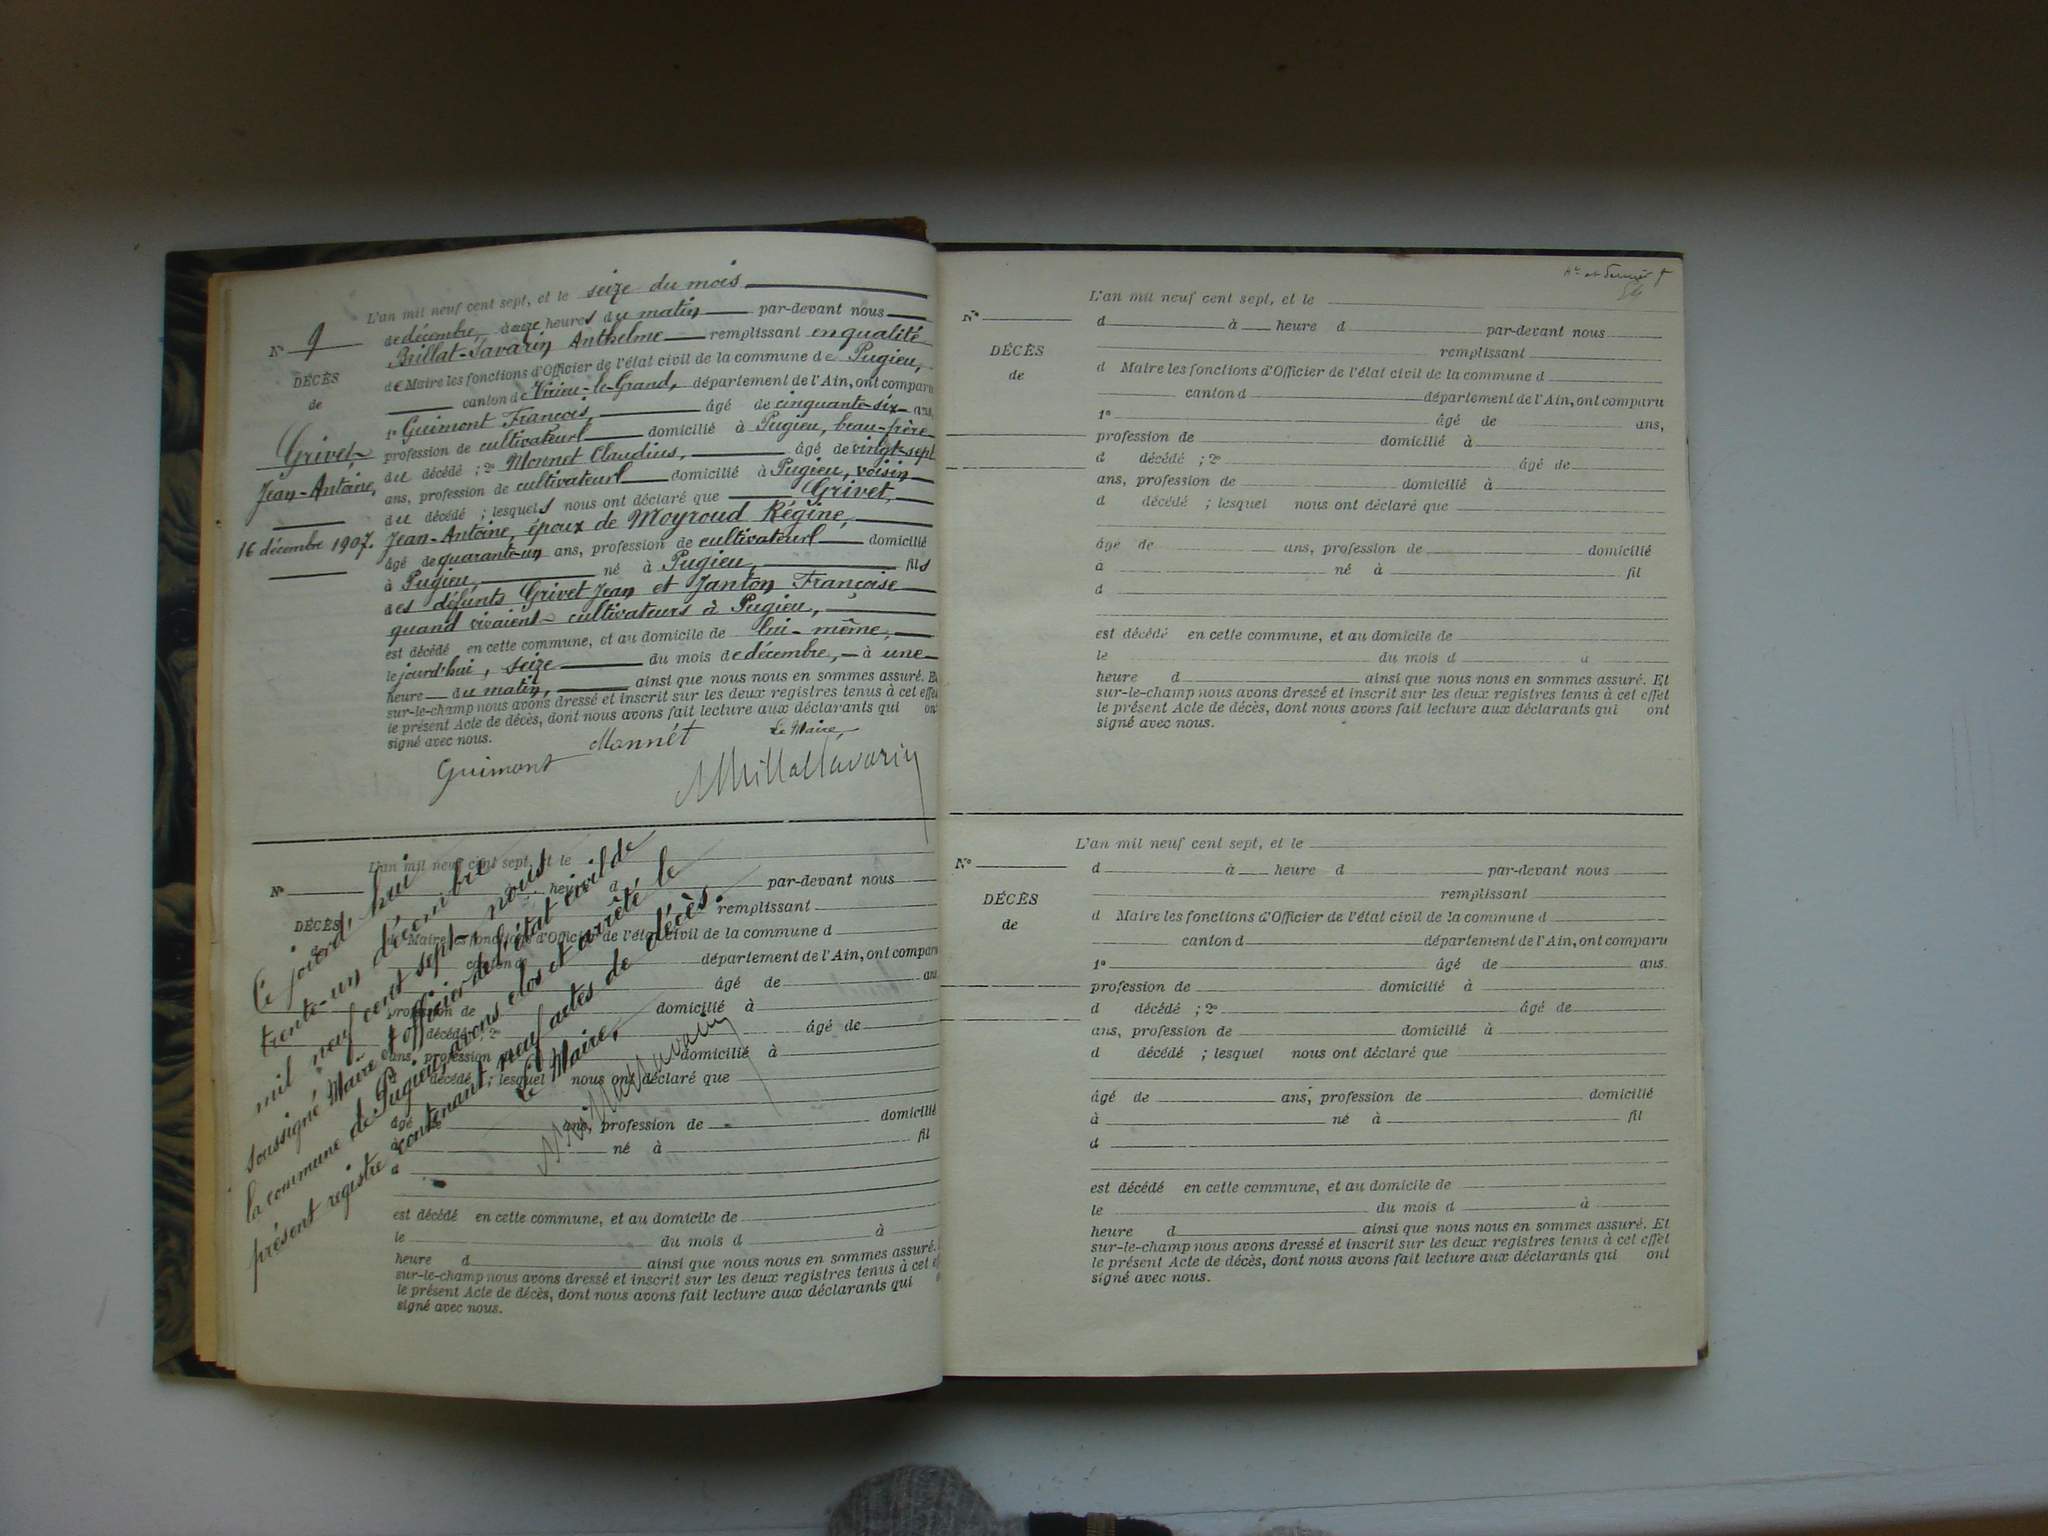 L'an mil neuf cent sept, et le seize du mois
Nº 9
de décembre, à onze heures du matin par-devant nous
Brillat-Savarin Anthelme remplissant en qualité
DÉCÈS
de
de Maire les fonctions d'Officier de l'état civil de la commune de Pugieu,
canton de Virieu-le-Grand, département de l'Ain, ont comparu
1º Guimont François, âgé de cinquante-six ans,
Grivet
Jean-Antoine,
16 décembre 1907.
profession de cultivateur domicilié à Pugieu, beau-frère
du décédé ; 2º Monnet Claudius, âgé de vingt-sept
ans, profession de cultivateur domicilié à Pugieu, voisin
du décédé ; lesquels nous ont déclaré que Grivet,
Jean-Antoine, époux de Moyroud Régine,
âgé de quarante-un ans, profession de cultivateur domicilié
à Pugieu, né à Pugieu, fils
des défunts Grivet Jean et Janton Françoise
quand vivaient cultivateurs à Pugieu,
est décédé en cette commune, et au domicile de lui-même,
le jourd'hui, seize du mois de décembre, à une
heure du matin, ainsi que nous nous en sommes assuré. Et
sur-le-champ nous avons dressé et inscrit sur les deux registres tenus à cet effet
le présent Acte de décès, dont nous avons fait lecture aux déclarants qui ont
signé avec nous.
Guimont Monnét Le Maire
L'an mil neuf cent sept, et le
Nº
heure d par-devant nous
remplissant
DÉCÈS
d Maire les fonctions d'Officier de l'état civil de la commune d
canton de département de l'Ain, ont comparu
âgé de ans
profession de domicilié à
décédé ; 2º âgé de
ans, profession domicilié à
décédé ; lesquel nous ont déclaré que
âgé ans, profession de domicilié
à né à fil
d
est décédé en cette commune, et au domicile de
le du mois d à
heure d ainsi que nous nous en sommes assuré.
sur-le-champ nous avons dressé et inscrit sur les deux registres tenus à cet
le présent Acte de décès, dont nous avons fait lecture aux déclarants qui
signé avec nous.
Ce jourd'hui
trente-un décembre
mil neuf cent sept, nous
soussigné Maire et officier de l'état civil de
la commune de Pugieu, avons clos et arrêté le
présent registre contenant neuf actes de décès.
Le Maire,
L'an mil neuf cent sept, et le
Nº
d à heure d par-devant nous
remplissant
DÉCÈS
de
d Maire les fonctions d'Officier de l'état civil de la commune d
canton d département de l'Ain, ont comparu
1º âgé de ans,
profession de domicilié à
d décédé ; 2º âgé de
ans, profession de domicilié à
d décédé ; lesquel nous ont déclaré que
âgé de ans, profession de domicilié
à né à fil
d
est décédé en cette commune, et au domicile de
le du mois d à
heure d ainsi que nous nous en sommes assuré. Et
sur-le-champ nous avons dressé et inscrit sur les deux registres tenus à cet effet
le présent Acte de décès, dont nous avons fait lecture aux déclarants qui ont
signé avec nous.
L'an mil neuf cent sept, et le
Nº
d à heure d par-devant nous
remplissant
DÉCÈS
de
d Maire les fonctions d'Officier de l'état civil de la commune d
canton d département de l'Ain, ont comparu
1º âgé de ans.
profession de domicilié à
d décédé ; 2º âgé de
ans, profession de domicilié à
d décédé ; lesquel nous ont déclaré que
âgé de ans, profession de domicilié
à né à fil
d
est décédé en cette commune, et au domicile de
le du mois d à
heure d ainsi que nous nous en sommes assuré. Et
sur-le-champ nous avons dressé et inscrit sur les deux registres tenus à cet effet
le présent Acte de décès, dont nous avons fait lecture aux déclarants qui ont
signé avec nous.